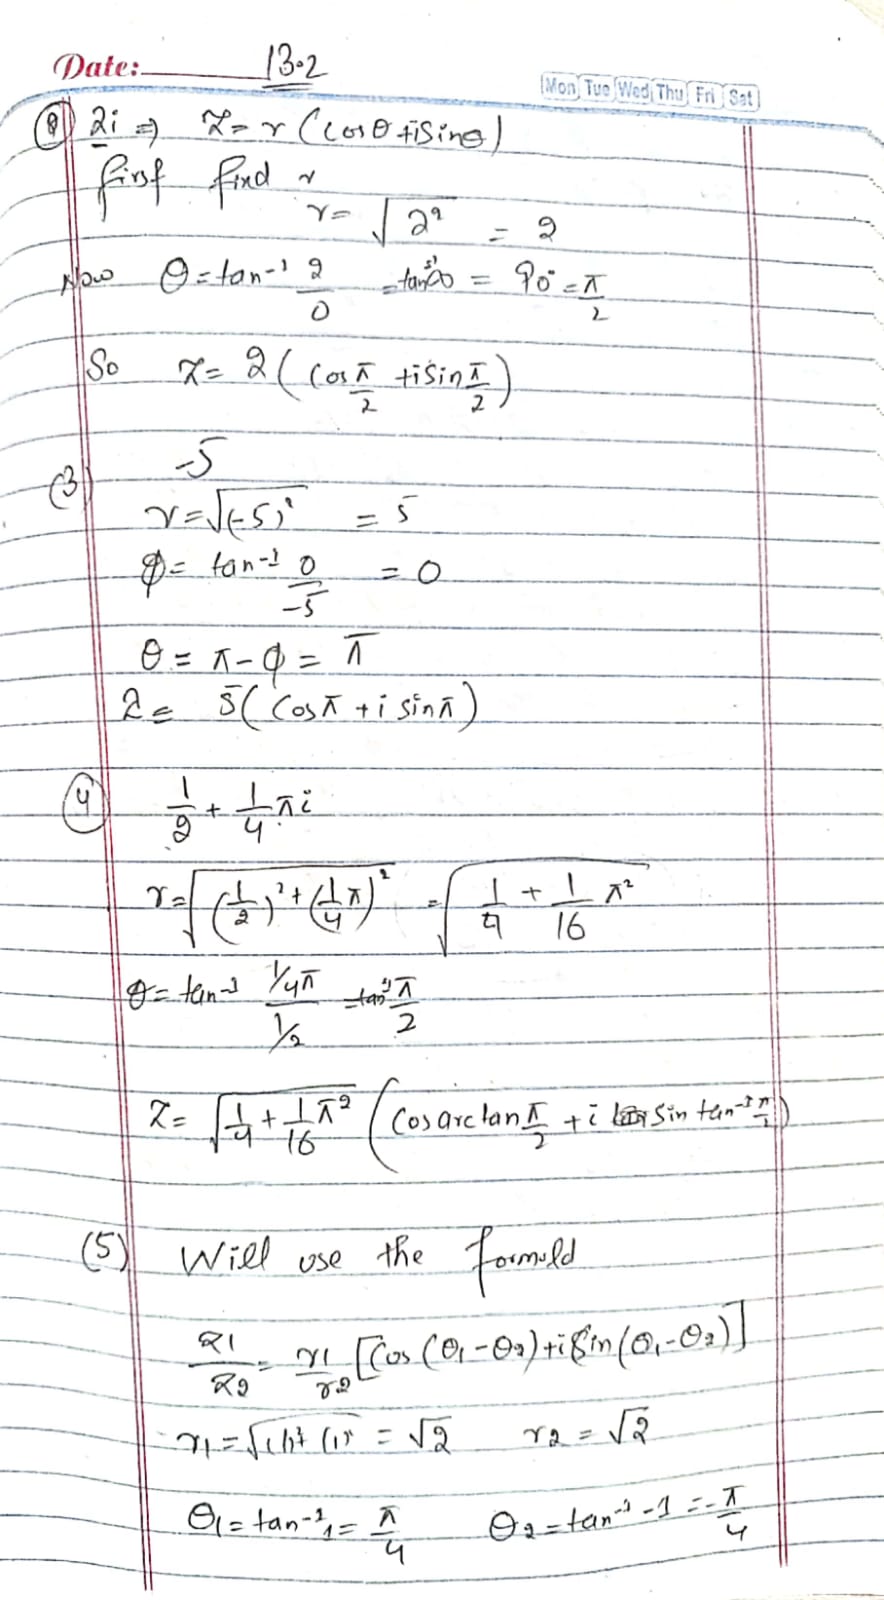 Date: 13.2
Mon Tue Wed Thu Fri Sat
(2) 2i ⇒ z = r (cosθ + i sinθ)
first find r
r = √2² = 2
Now θ = tan⁻¹ 2/0 = tan⁻¹∞ = 90° = π/2
So z = 2 ( cos π/2 + i sin π/2 )
(3) -5
r = √(-5)² = 5
φ = tan⁻¹ 0/-5 = 0
θ = π - φ = π
z = 5 ( cos π + i sin π )
(4) 1/2 + 1/4 πi
r = √(1/2)² + (1/4 π)² = √1/4 + 1/16 π²
θ = tan⁻¹ 1/4π / 1/2 = tan⁻¹ π/2
z = √1/4 + 1/16 π² ( cos arctan π/2 + i sin tan⁻¹ π/2 )
(5) Will use the formula
z1/z2 = r1/r2 [ cos (θ1 - θ2) + i sin (θ1 - θ2) ]
r1 = √(1)² + (1)² = √2 r2 = √2
θ1 = tan⁻¹ 1 = π/4 θ2 = tan⁻¹ -1 = -π/4